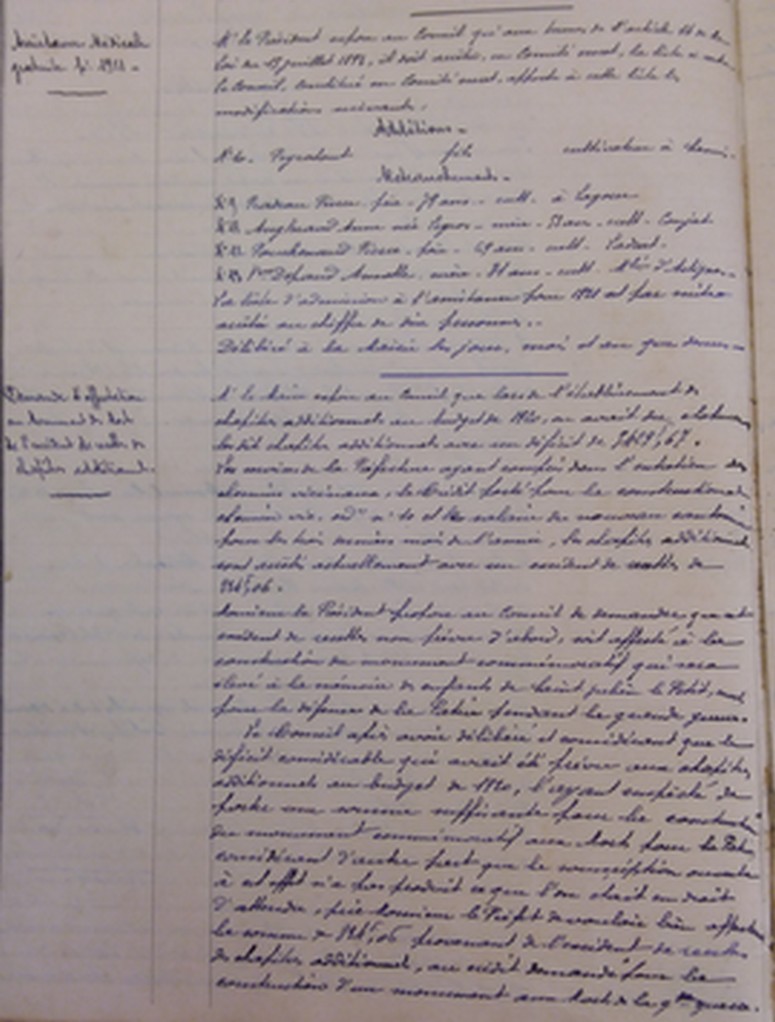 Assistance Médicale
gratuite pr 1921 -
M. le Président expose au Conseil qu'aux termes de l'article 14 de la
loi du 15 juillet 1893, il doit arrêter, en Comité secret, la liste
le Conseil, constitué en Comité secret, apporte à cette liste les
modifications suivantes.
Additions -
N° 10. Peyratout fils cultivateur à
Retranchements -
N° 9 Pierre - père - 79 ans - cult. à
N° 11 Anne née - mère - 53 ans - cult.
N° 12 Pierre - père - 69 ans - cult.
N° 13 Vve - mère - 71 ans - cult.
La liste d'admission à l'assistance pour 1921 est par suite
arrêtée au chiffre de dix personnes.
Délibéré à la Mairie les jour, mois et an que dessus -
Demande d'affectation
au Monument des Morts
de l'excédent de recettes des
chapitres additionnels.
M. le Maire expose au Conseil que lors de l'établissement des
chapitres additionnels au budget de 1920, on avait dû
lesdits chapitres additionnels avec un déficit de
Les services de la Préfecture ayant compris dans l'entretien des
chemins vicinaux, le crédit porté pour la construction du
chemin vic. ord. n° 10 et le salaire du nouveau cantonnier
pour les trois derniers mois de l'année, les chapitres additionnels
sont arrêtés actuellement avec un excédent de recettes de
Monsieur le Président propose au Conseil de demander que cet
excédent de recettes non prévu d'abord, soit affecté à la
construction du monument commémoratif qui sera
élevé à la mémoire des enfants de Saint le Petit, morts
pour la défense de la Patrie pendant la grande guerre.
Le Conseil après avoir délibéré et considérant que le
déficit considérable qui avait été prévu aux chapitres
additionnels au budget de 1920, l'ayant empêché de
porter une somme suffisante pour la construction
du monument commémoratif aux Morts pour la Patrie
considérant d'autre part que la souscription ouverte
à cet effet n'a pas produit ce que l'on était en droit
d'attendre, prie Monsieur le Préfet de vouloir bien affecter
la somme de provenant de l'excédent de recettes
des chapitres additionnels, au crédit demandé pour la
construction d'un monument aux Morts de la gde guerre.